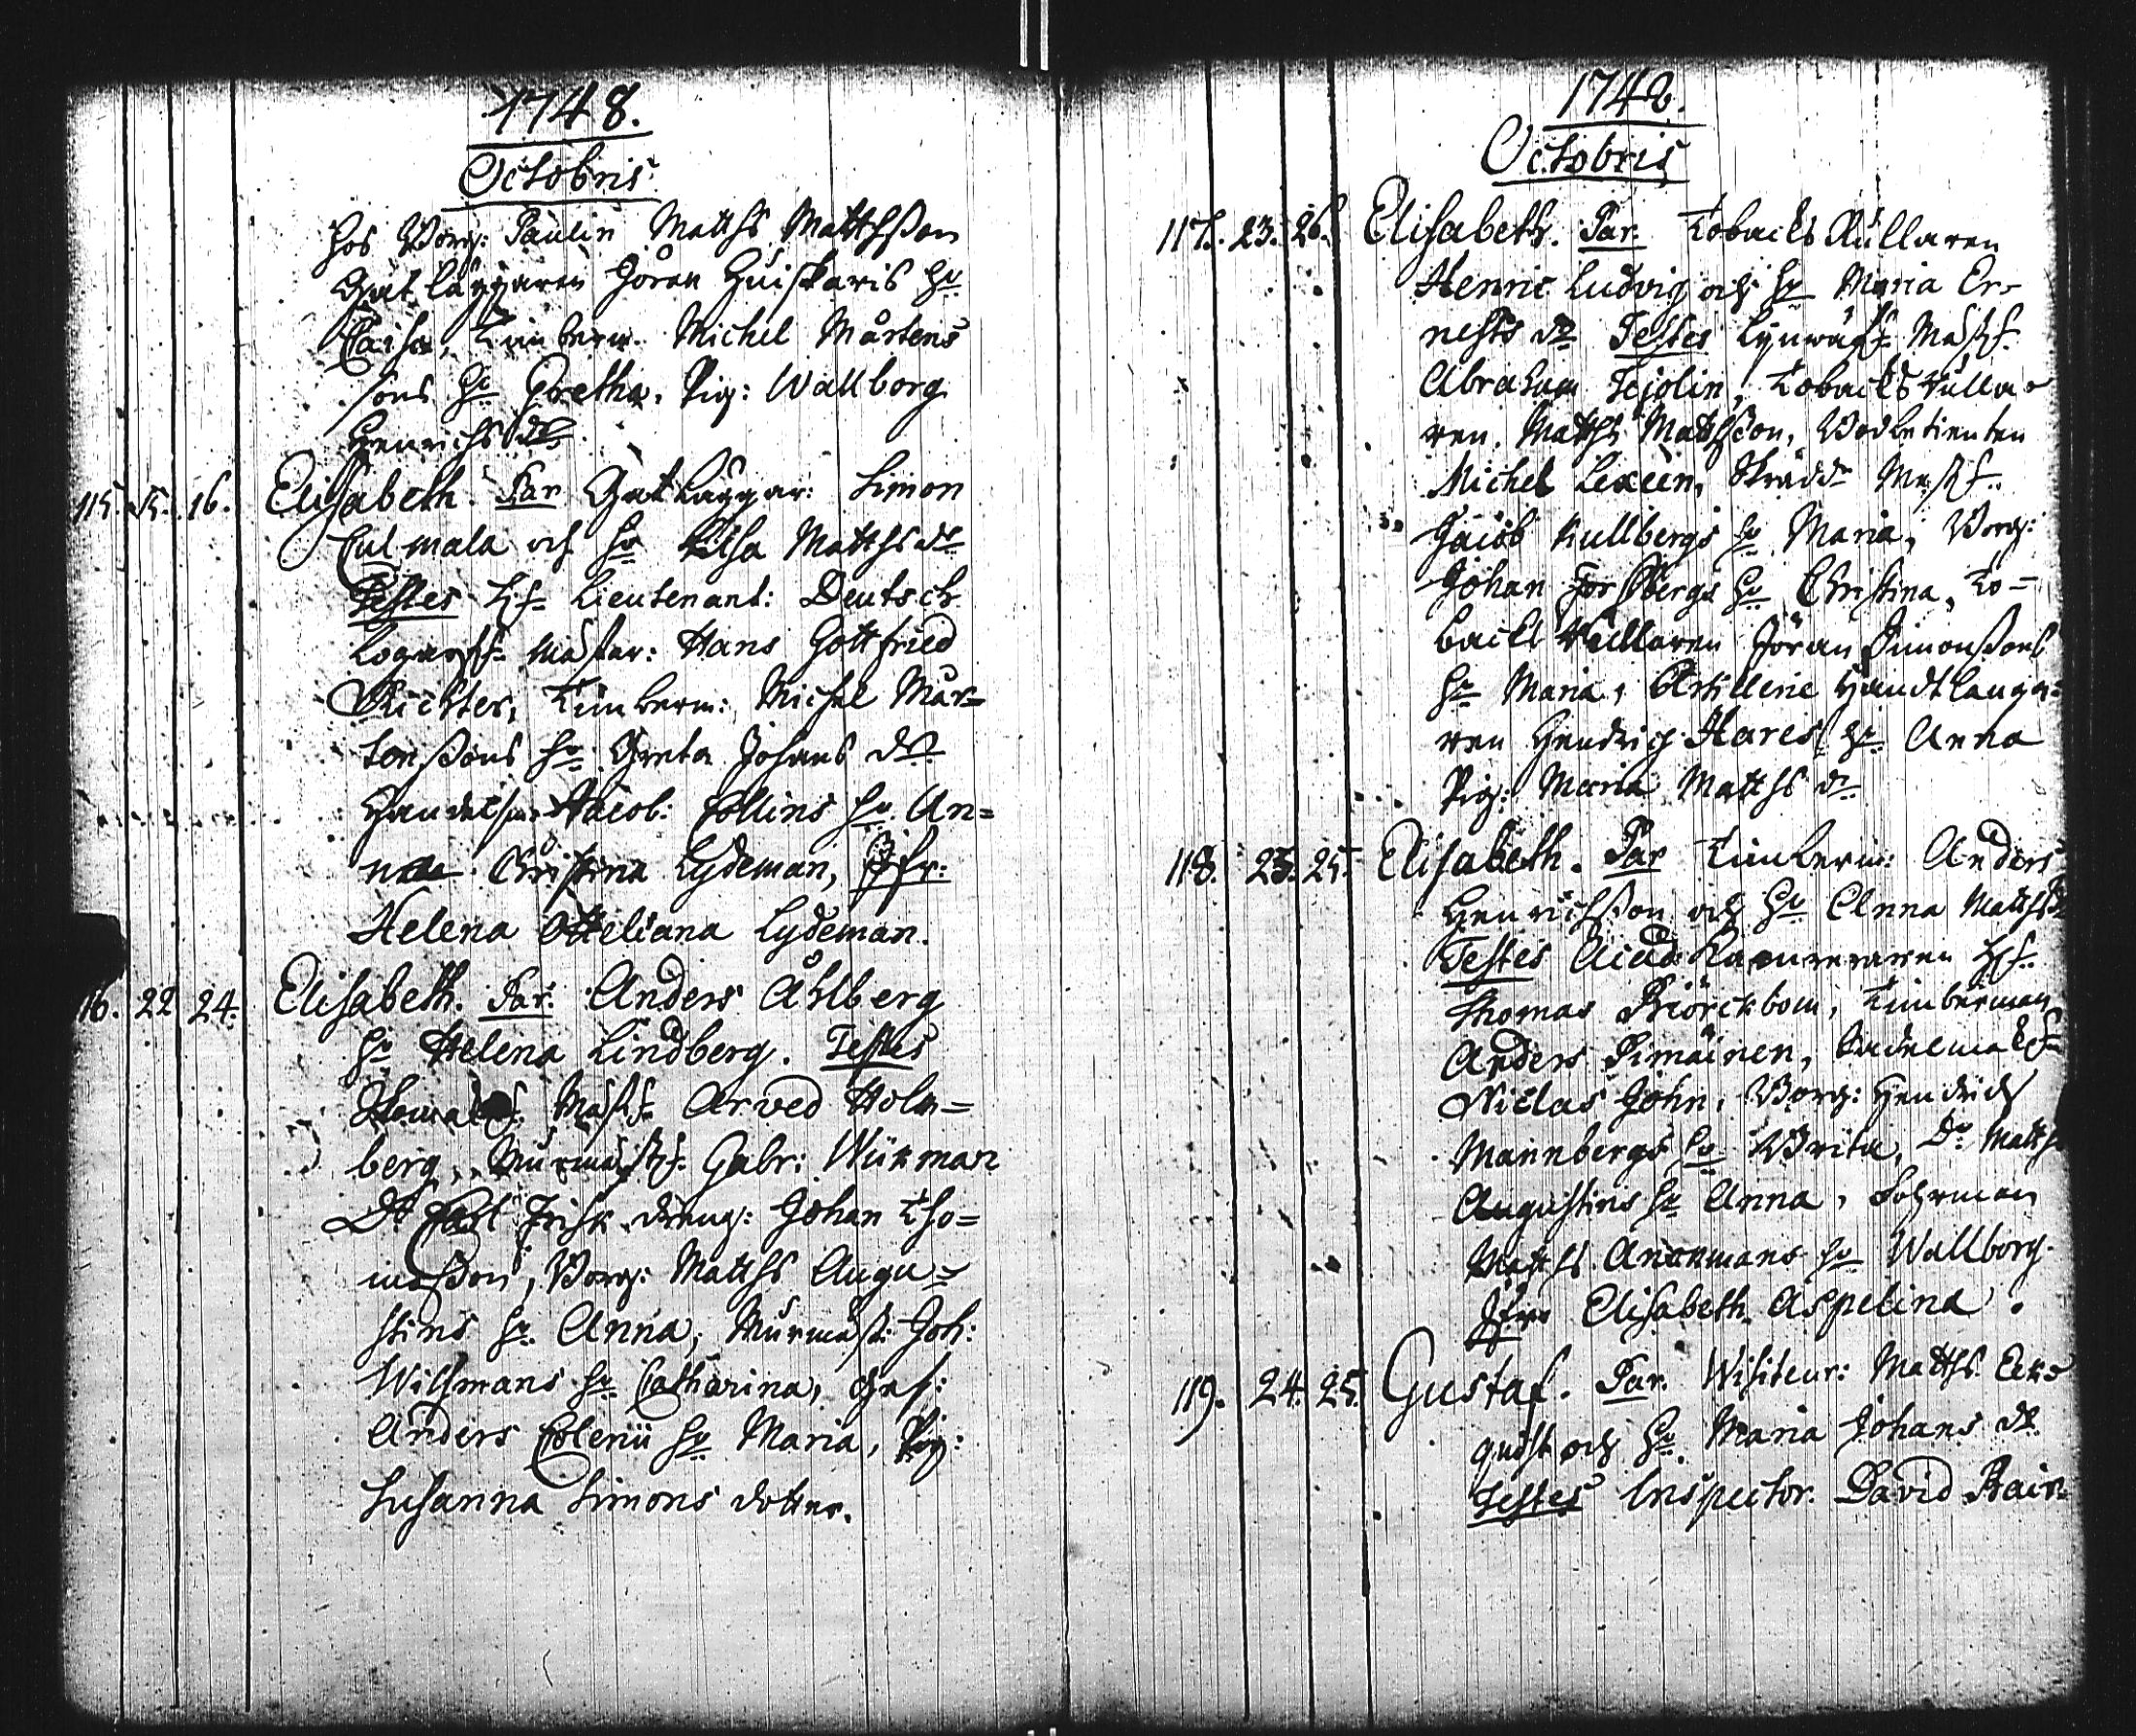 1748.
Octobris
hos Borg: Paulin Matths Matthsson
Gat läggaren Jören Huiskaris hu
Caisa, Timberm. Michel Mårtens
sons hu Gretha. Pig: Wallborg
Henrichs dr
115. 15. 16. Elisabeth. Par Gatläggar: Simon
Culmala och hu Elsa Matths dr
Testes H: Lieutenant: Deutsch
Mästar: Hans Gottfried
Richter, Timberm: Michel Mår=
tenssons hu: Greta Johans dr
Handelsm. Jacob: Collins hu. An=
na Christina Lydeman, Jfr:
Helena Otteliana Lydeman.
116. 22 24. Elisabeth. Par. Anders Åhlberg
hu Helena Lindberg. Testes
Mäst: Arved Holm=
berg, Murmäst: Gabr: Wikman
Do Carl Frisk, dreng: Johan Tho=
masson, Borg: Matths Augu=
stins hu. Anna, Murmäst: Joh:
Wilsmans hu Catharina, Gef:
Anders Colenii hu Maria, Pig:
Susanna Simons dotter.
1748.
Octobris
117. 23. 26. Elisabeth. Par. Tobacks Rullaren
Henric Ludvig och hu Maria Er=
nests dr Testes Lynwäf: Mäst:
Abraham Tejolin, Tobacks Rulla=
ren. Matths Mattsson, Wodbetienten
Michel Lexeen, Skrädd: Mäst:
Jacob Kullbergs hu Maria, Borg:
Johan Forssbergs hu Christina, To=
backs Rullaren Jöran Simonssons
hu Maria, Artillerie Handtlanga=
ren Hendrich Hares hu Anna
Pig: Maria Matths dr
118. 23. 25. Elisabeth. Par Timberm: Anders
Henrichsson och hu Anna Matths dr
Testes Kamereraren H:
Thomas Biörckbom, Timberman
Anders Pimäinen, Sadelmak:
Niclas John, Borg: Hendrich
Mannbergs hu Brita, Do Matths
Augustins hu Anna, Forman
Matths Anckmans hu Wallborg.
Jfru Elisabeth Aspelina.
119. 24. 25. Gustaf. Par. Wisiteur: Matths. Eck=
quist och hu. Maria Johans dr
Testes Inspector. David Rair=